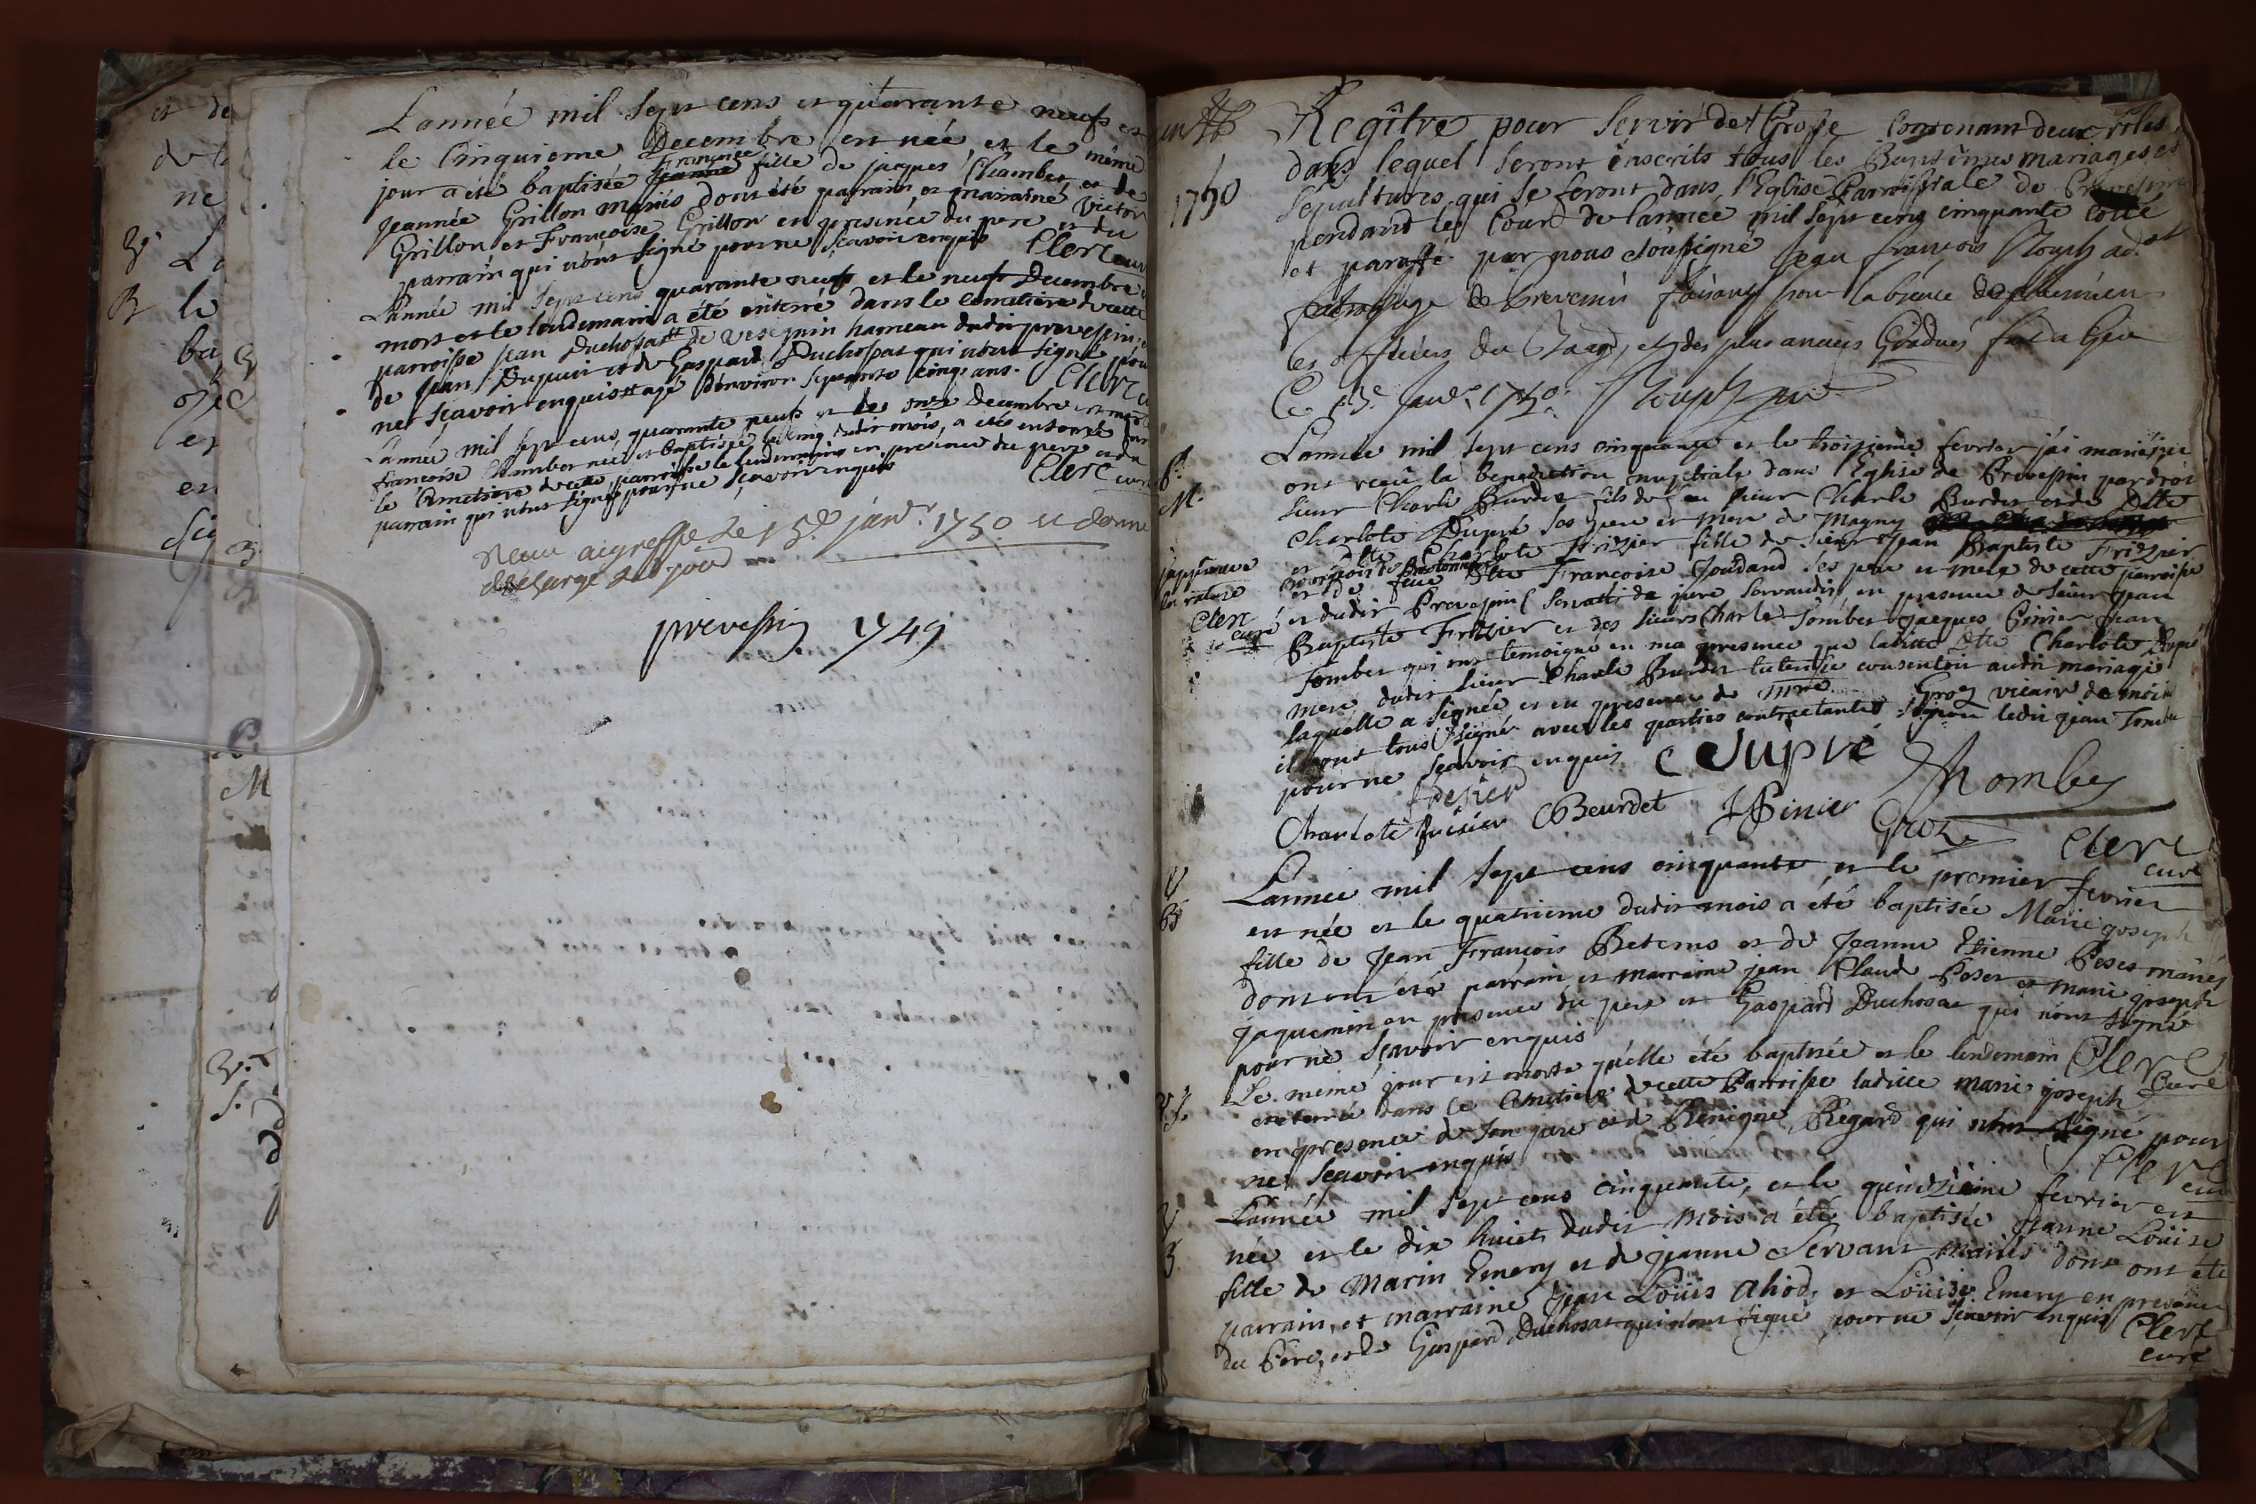 et de
de la
ne
Bp. La
B le
ba
en
en
sig
M
Bp.
S.
L'année mil sept cens et quarante neufs et
le cinquieme Decembre est née, et le même
jour a été baptisée Jeanne françoise fille de jacques Chambet et de
jeannée Grillon mariés dont été parrain et marraine Victor
Grillon et Françoise Grillon en presence du pere et du
parrain qui n'ont signé pour ne sçavoir enquis Clerc curé
L'année mil sept cens quarante neufs et le neufs Decembre
mort et le lendemain a été enterré dans le cimetiere de cette
parroisse jean Duchosatt de Vesegnin hameau dudit prevessin
de jean Dupuis et de Gaspard Duchosat qui n'ont signé pour
ne sçavoir enquis agé d'environ septante cinq ans. Clerc
L'année mil sept cens quarante neufs et le onze Decembre est morte
françoise Chambet née et baptisée le cinq dudit mois, a étés enterrée dans
le Cimetiere de cette parroisse le lendemain en presence du pere et du
parrain qui n'ont signé pour ne sçavoir enquis Clerc curé
Receu au greffe le 15.e janv.r 1750 et donné
décharge led jour
prevessin 1749
1750
Regître pour servir de Grosse contenant deux rôles,
dans lequel seront inscrits tous les Baptêmes mariages et
sepultures qui se feront dans l'Eglise Parroissiale de Prevessin
pendant le Cour de l'année mil sept cens cinquante coté
et paraffé par nous soussigné jean françois Rouph
juge de Prevessin faisant pour l'absence de
les officiers du et des plus anciens Gradués fait a Gex
Ce 13.e Janv.r 1750. Rouph
P.r
M.
L'année mil sept cens cinquante et le troisieme fevrier j'ai marié, et
ont reçu la benediction nuptiale dans l'Eglise de Prevessin par droit
sieur Charle Burdet fils de feu sieur Charle Burdet et de Dlle
Charlote Dupré ses pere et mere de Magny
et dlle Charlote Frizier fille de sieur jean Baptiste Frizier
Bourgeois de
et de feue Dlle Francoise Goudard ses pere et mere de cette parroisse
j'approuve
la rature
Clerc
curé
et dudit Prevessin servatis de jure servandis, en presence de sieur jean
Baptiste Frizier et des sieurs Charle Tombet jacques Pinier jean
Tombet qui ont temoigné en ma presence que ladite Dlle Charlote Dupré
mere dudit sieur Charle Burdet consentoit audit mariage
laquelle a signée et en presence de mre Groz vicaire de moin
ils ont tous signé avec les parties contractantes sinon ledit jean Tombet
pour ne sçavoir enquis C Dupré
frésier Thombes
Charlote frisier C Beurdet J Pinier Groz Clerc
curé
V
B
L'année mil sept cens cinquante et le premier fevrier
est née et le quatrieme dudit mois a été baptisée Marie joseph
fille de Jean François Betems et de Jeanne Etienne Peses mariés
dont ont été parrain et marraine jean Claude Poset et marie joseph
jaquemin en presence du pere et Gaspard Duchosat qui n'ont signé
pour ne sçavoir enquis Clerc
Curé
Le meme jour est morte qu'elle été baptisée et le lendemain
enterrée dans le Cimetiere de cette Parroisse ladite marie joseph
en presence de son pere et de Benigne Regard qui n'ont signé pour
ne sçavoir enquis Clerc
curé
V
B.
L'année mil sept cens cinquante, et le quinzieme fevrier est
née et le dix huict dudit mois a été baptisée Jeanne Loüise
fille de Marin Emery et de jeanne Servant mariés dont ont été
parrain, et marraine Jean Loüis Ahiod, et Loüise Emery en presence
du Pere, et de Gaspard Duchosat qui n'ont signé pour ne sçavoir enquis Clerc
curé